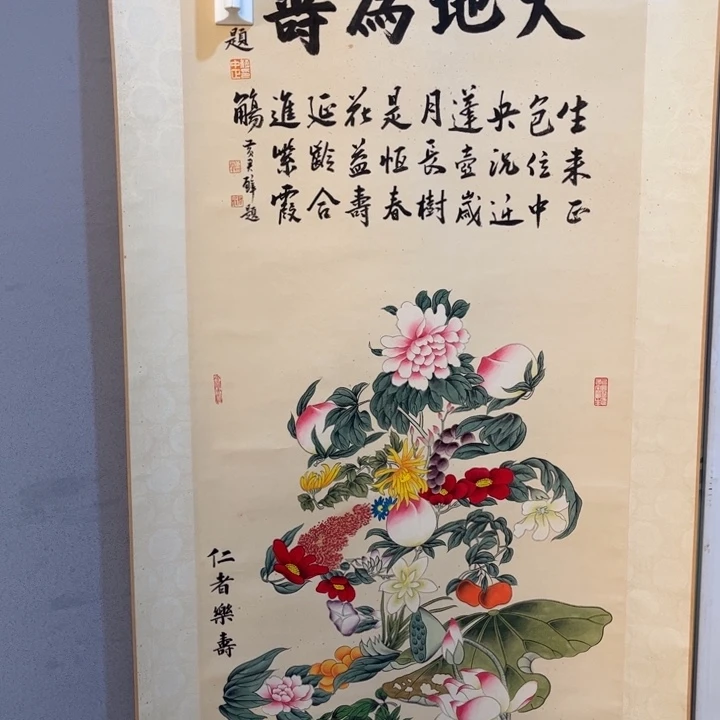 天地為壽
題
生來正
色位中
央況近
蓬壺歲
月長樹
是恆春
花益壽
延齡合
進紫霞
觴
黃君璧題
仁者樂壽